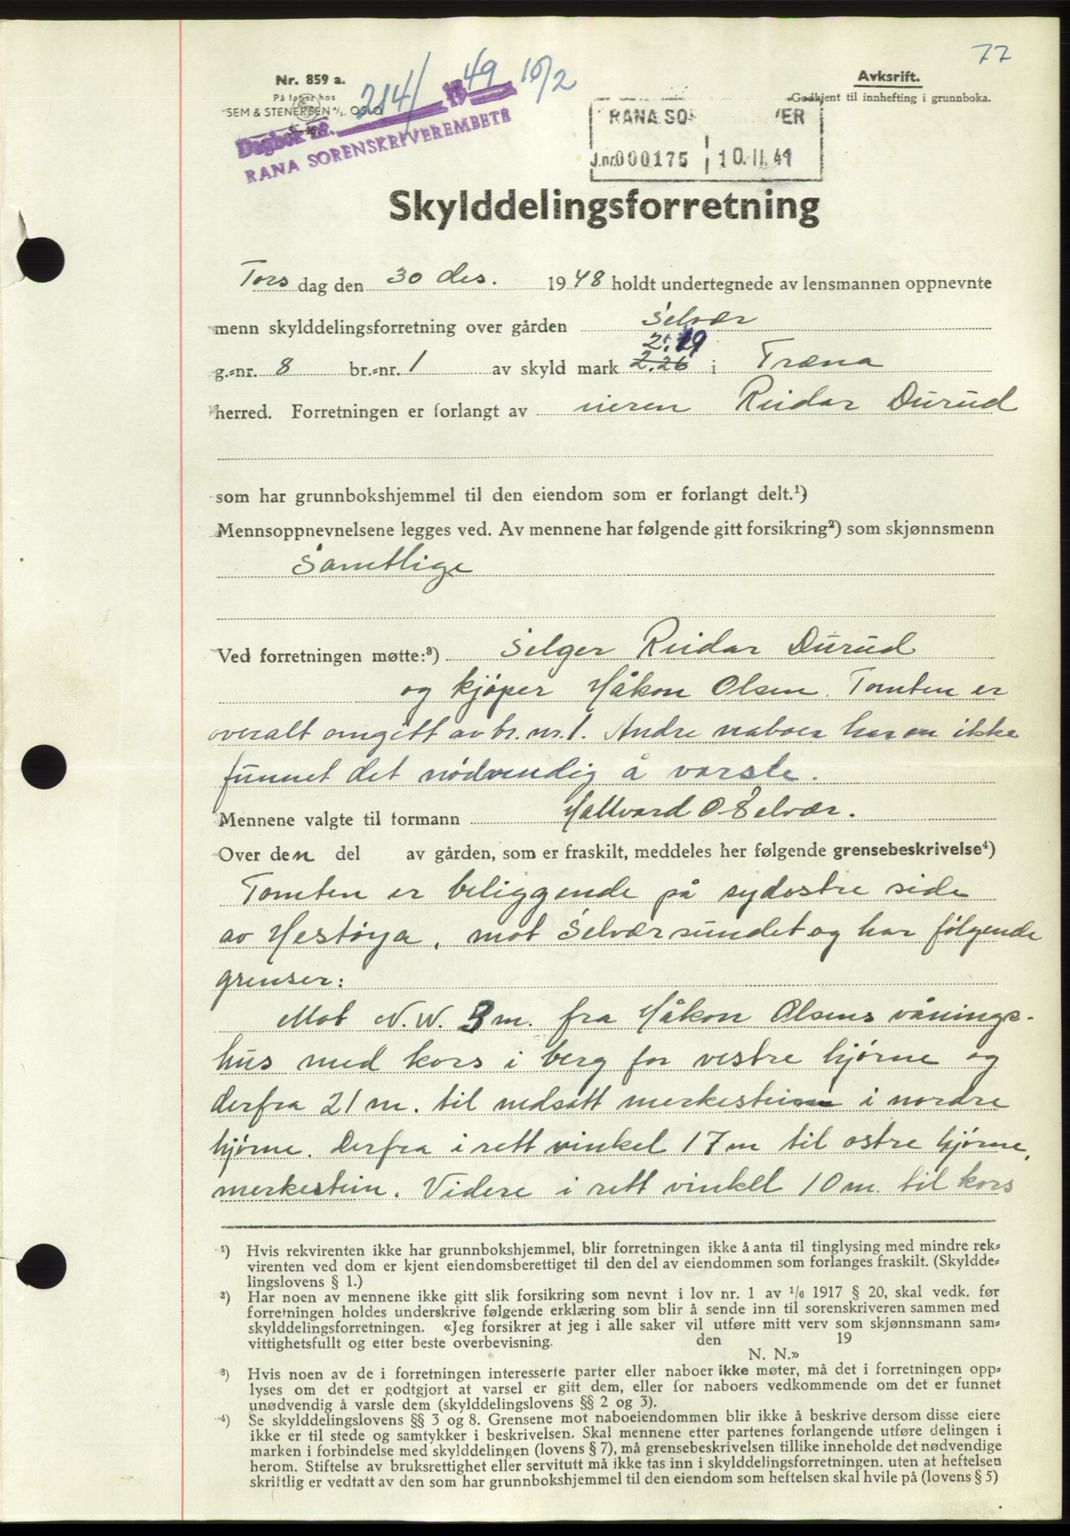 77
Nr. 859 a.
På lager hos
SEM & STENERSEN A/S, OSLO
Dagbok nr. 214/ 1949 10/2
RANA SORENSKRIVEREMBETE
Avskrift.
Godkjent til innhefting i grunnboka.
RANA SO VER
J.nr. 000175 10.II.49
Skylddelingsforretning
Tors dag den 30 des. 1948 holdt undertegnede av lensmannen oppnevnte
menn skylddelingsforretning over gården Selvær
2.19
g.-nr. 8 br.-nr. 1 av skyld mark 2.26 i Træna
herred. Forretningen er forlangt av eieren Reidar Durud
som har grunnbokshjemmel til den eiendom som er forlangt delt.¹)
Mennsoppnevnelsene legges ved. Av mennene har følgende gitt forsikring²) som skjønnsmenn
Samtlige
Ved forretningen møtte:³) Selger Reidar Durud
og kjøper Håkon Olsen. Tomten er
overalt omgitt av br. nr. 1. Andre naboer har en ikke
funnet det nødvendig å varsle.
Mennene valgte til formann Hallvard O Selvær.
Over den del av gården, som er fraskilt, meddeles her følgende grensebeskrivelse⁴)
Tomten er beliggende på sydøstre side
av Hestøya, mot Selværsundet og har følgende
grenser:
Mot N.W. 3 m. fra Håkon Olsens vånings-
hus med kors i berg for vestre hjørne og
derfra 21 m. til nedsatt merkestein i nordre
hjørne. Derfra i rett vinkel 17 m til østre hjørne,
merkestein. Videre i rett vinkel 10 m. til kors
¹) Hvis rekvirenten ikke har grunnbokshjemmel, blir forretningen ikke å anta til tinglysing med mindre rek-
virenten ved dom er kjent eiendomsberettiget til den del av eiendommen som forlanges fraskilt. (Skyldde-
lingslovens § 1.)
²) Har noen av mennene ikke gitt slik forsikring som nevnt i lov nr. 1 av 1/6 1917 § 20, skal vedk. før
forretningen holdes underskrive følgende erklæring som blir å sende inn til sorenskriveren sammen med
skylddelingsforretningen. «Jeg forsikrer at jeg i alle saker vil utføre mitt verv som skjønnsmann sam-
vittighetsfullt og etter beste overbevisning. den 19
N. N.»
³) Hvis noen av de i forretningen interesserte parter eller naboer ikke møter, må det i forretningen opp-
lyses om det er godtgjort at varsel er gitt dem, eller for naboers vedkommende om det er funnet
unødvendig å varsle dem (skylddelingslovens §§ 2 og 3).
⁴) Se skylddelingslovens §§ 3 og 8. Grensene mot naboeiendommen blir ikke å beskrive dersom disse eiere
ikke er til stede og samtykker i beskrivelsen. Skal mennene etter partenes forlangende utføre delingen i
marken i forbindelse med skylddelingen (lovens § 7), må grensebeskrivelsen tillike inneholde det nødvendige
herom. Stiftelse av bruksrettighet eller servitutt må ikke tas inn i skylddelingsforretningen. uten at heftelsen
skriftlig er vedtatt av den som har grunnbokshjemmel til den eiendom som heftelsen skal hvile på (lovens § 5)